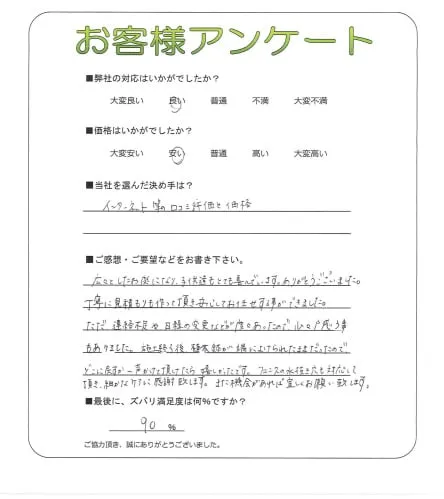 お客様アンケート
■弊社の対応はいかがでしたか?
大変良い 良い 普通 不満 大変不満
■価格はいかがでしたか?
大変安い 安い 普通 高い 大変高い
■当社を選んだ決め手は?
インターネット等の口コミ評価と価格
■ご感想・ご要望などをお書き下さい。
広々としたお庭になり、子供達もとても喜んでいます。ありがとうございました。
丁寧に見積もりも作って頂き安心してお任せする事ができました。
ただ、連絡不足や日程の変更などが度々あったので、心々と思う事
もありました。施工終了後、植木鉢が端によけられたままだったので、
どこに戻すか一声かけて頂けたら嬉しかったです。フェンスの水抜き穴も対応して
頂き、細かなアフターに感謝致します。また機会があれば宜しくお願い致します。
■最後に、ズバリ満足度は何%ですか?
90 %
ご協力頂き、誠にありがとうございました。